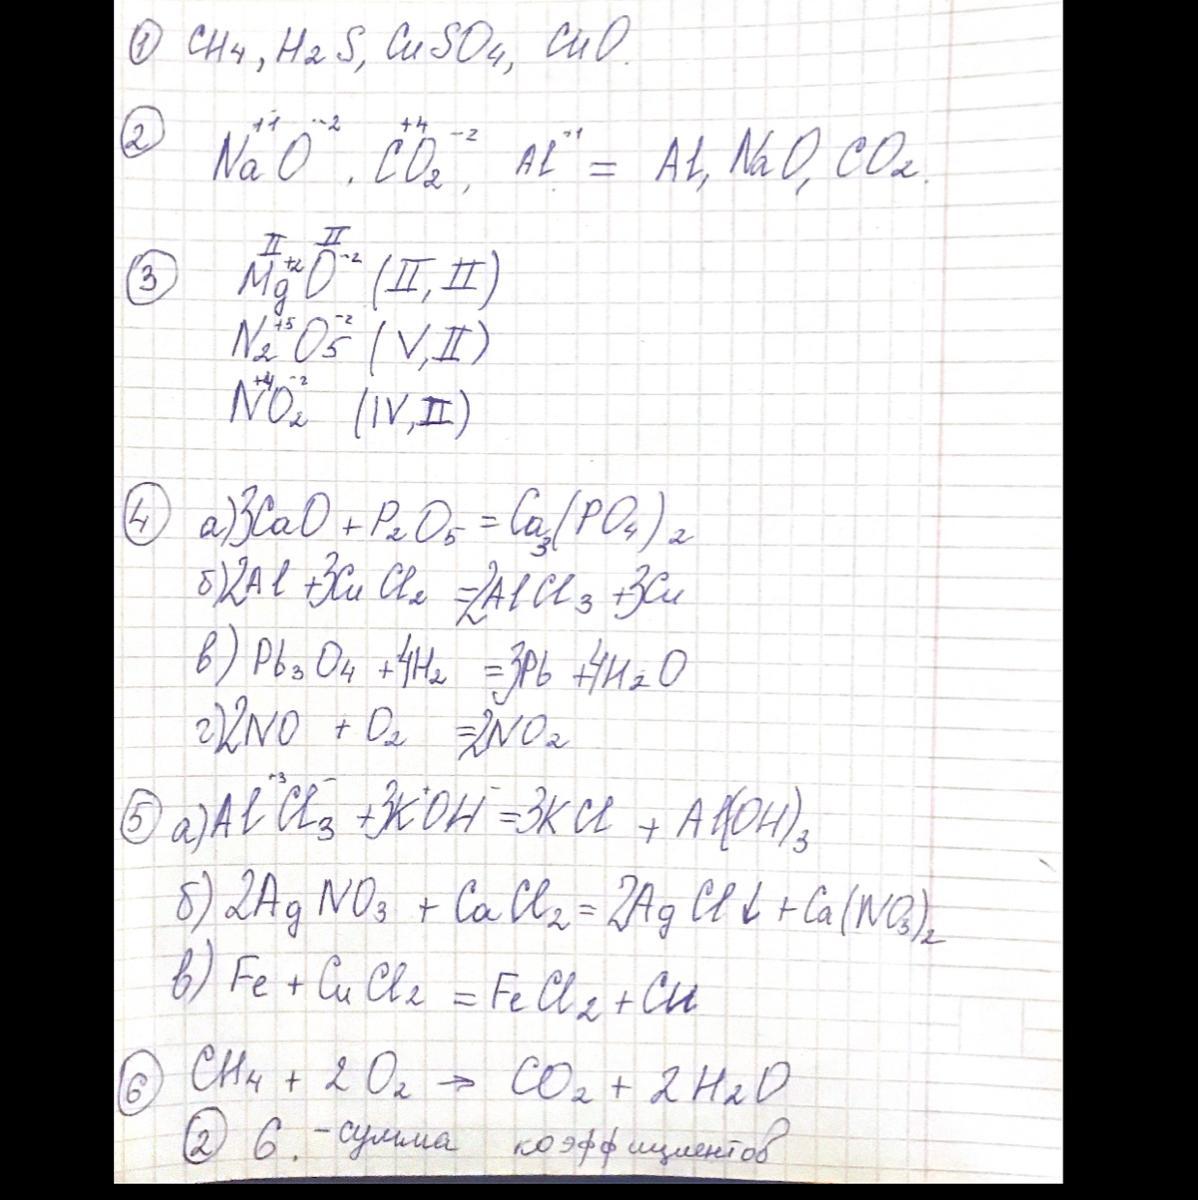 ① CH4, H2S, CuSO4, CuO.
② Na⁺¹O⁻², C⁺⁴O2⁻², Al⁺¹ = Al, NaO, CO2.
③ II II Mg⁺²O⁻² (II, II)
N2⁺⁵O5⁻² (V, II)
N⁺⁴O2⁻² (IV, II)
④ а) 3CaO + P2O5 = Ca3(PO4)2
б) 2Al + 3CuCl2 = 2AlCl3 + 3Cu
в) Pb3O4 + 4H2 = 3Pb + 4H2O
г) 2NO + O2 = 2NO2
⑤ а) Al⁺³Cl3⁻ + 3K⁺OH⁻ = 3KCl + Al(OH)3
б) 2AgNO3 + CaCl2 = 2AgCl↓ + Ca(NO3)2
в) Fe + CuCl2 = FeCl2 + Cu
⑥ CH4 + 2O2 → CO2 + 2H2O
② 6. - сумма коэффициентов